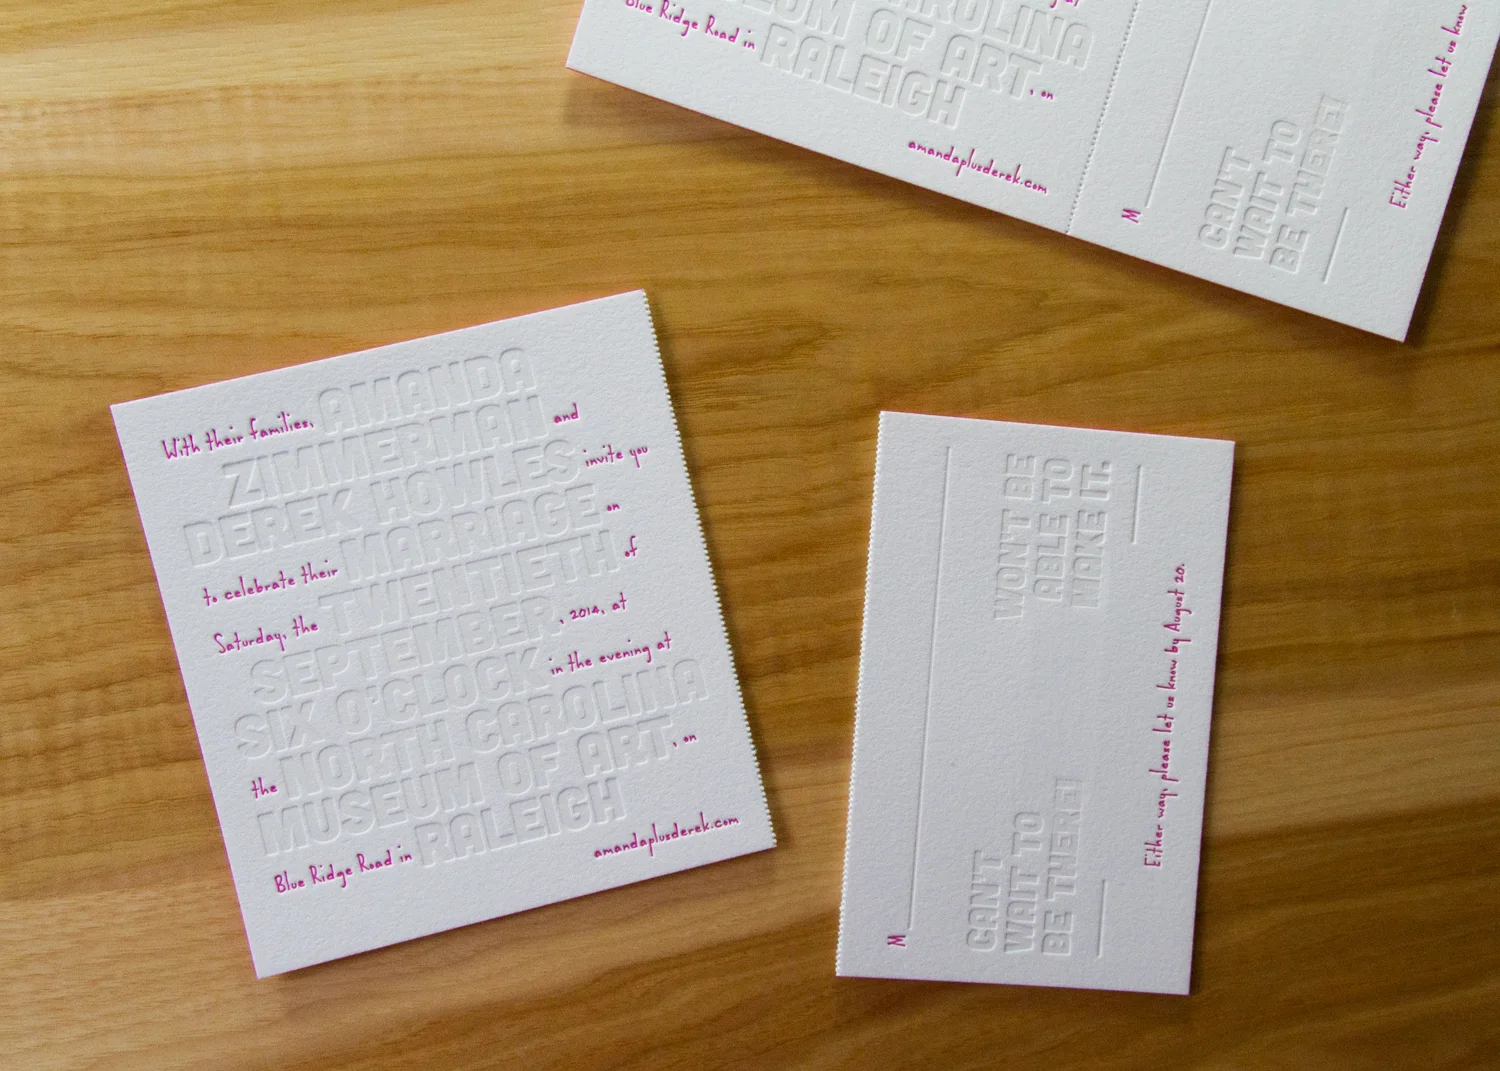 Blue Ridge Road in
CAROLINA
UM OF ART, on
RALEIGH
amandaplusderek.com
M
CAN'T
WAIT TO
BE THERE!
Either way, please let us know
With their families, AMANDA
ZIMMERMAN and
DEREK HOWLES invite you
to celebrate their MARRIAGE on
Saturday, the TWENTIETH of
SEPTEMBER, 2014, at
SIX O'CLOCK in the evening at
the NORTH CAROLINA
MUSEUM OF ART, on
Blue Ridge Road in RALEIGH
amandaplusderek.com
M
WON'T BE
ABLE TO
MAKE IT.
CAN'T
WAIT TO
BE THERE!
Either way, please let us know by August 20.